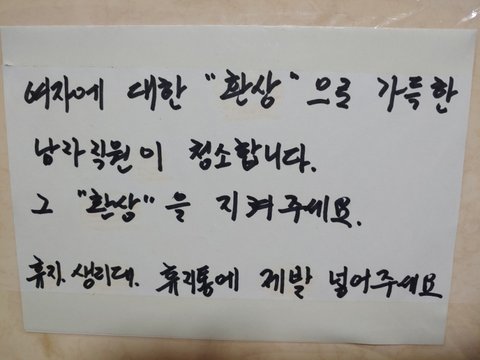 여자에 대한 "환상"으로 가득한
남자직원이 청소합니다.
그 "환상"을 지켜주세요.
휴지. 생리대. 휴지통에 제발 넣어주세요